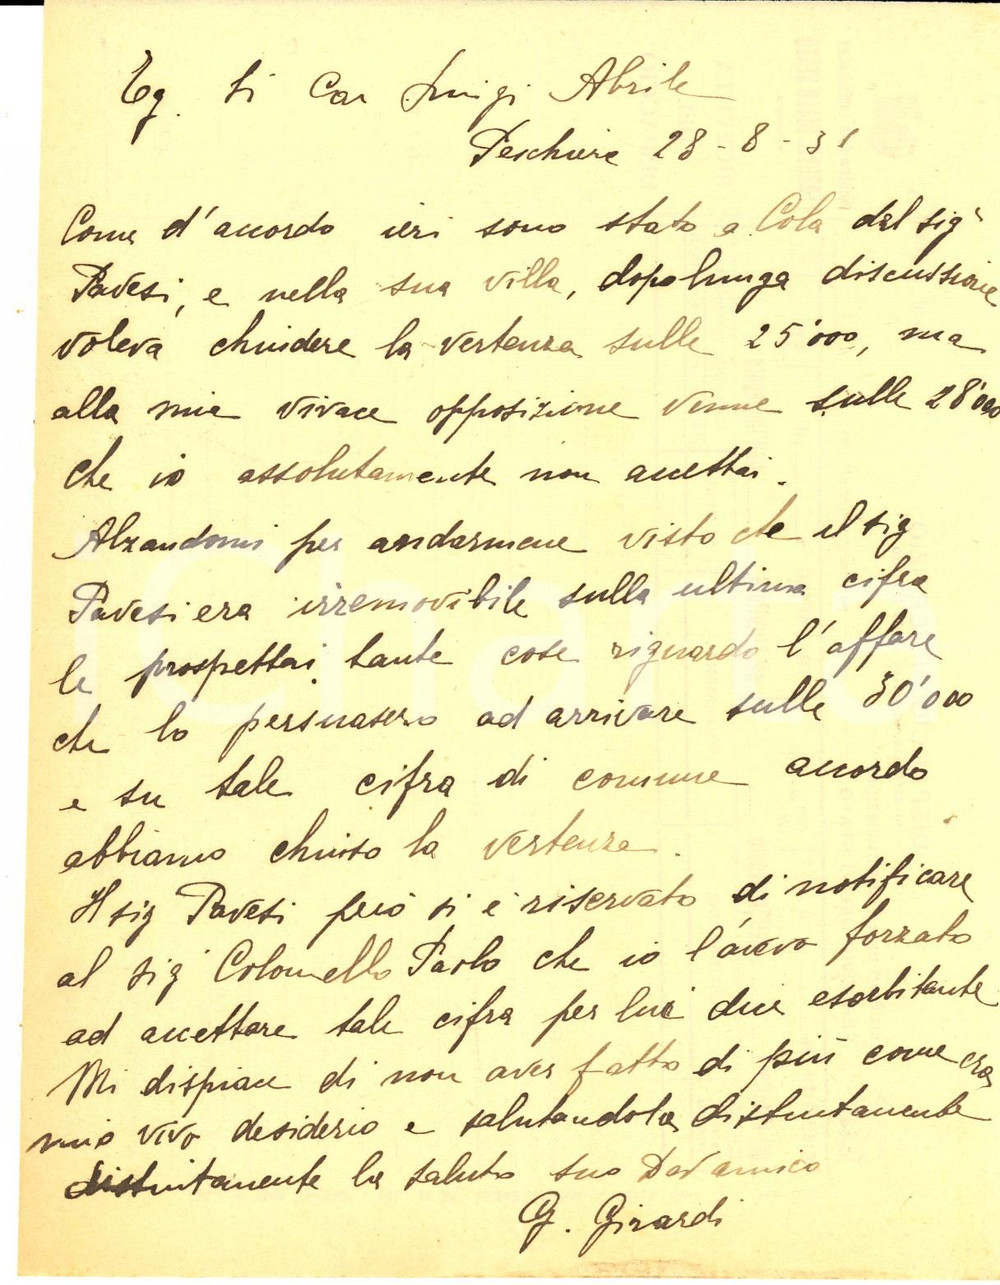 Eg. Si Cav Luigi Abrile
Peschiera 28-8-31
Come d'acordo ieri sono stato a Colà dal sig
Pavesi, e nella sua villa, dopo lunga discussione
voleva chiudere la vertenza sulle 25'000, ma
alla mia vivace opposizione venne sulle 28'000
che io assolutamente non acettai.
Alzandomi per andarmene visto che il sig
Pavesi era irremovibile sulla ultima cifra
le prospettai tante cose riguardo l'affare
che lo persuasero ad arrivare sulle 30'000
e su tale cifra di comune acordo
abbiamo chiuso la vertenza.
Il sig Pavesi però si è riservato di notificare
al sig Colonnello Paolo che io l'avevo forzato
ad acettare tale cifra per lui dice esorbitante
Mi dispiace di non aver fatto di più come era
mio vivo desiderio e salutandola distintamente
distintamente la saluto suo Dev amico
G. Girardi